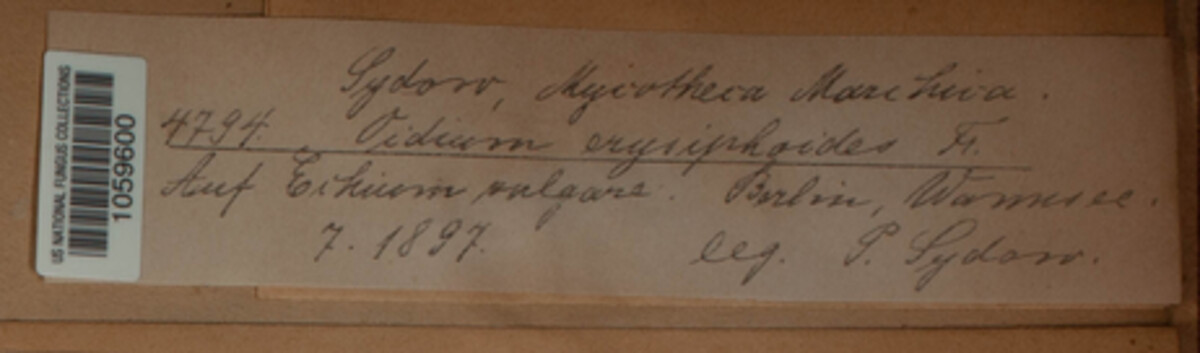 US NATIONAL FUNGUS COLLECTIONS
1059600
Sydow, Mycotheca Marchica.
4794. Oidium erysiphoides Fr.
Auf Echium vulgare. Berlin, Wannsee.
7. 1897. leg. P. Sydow.